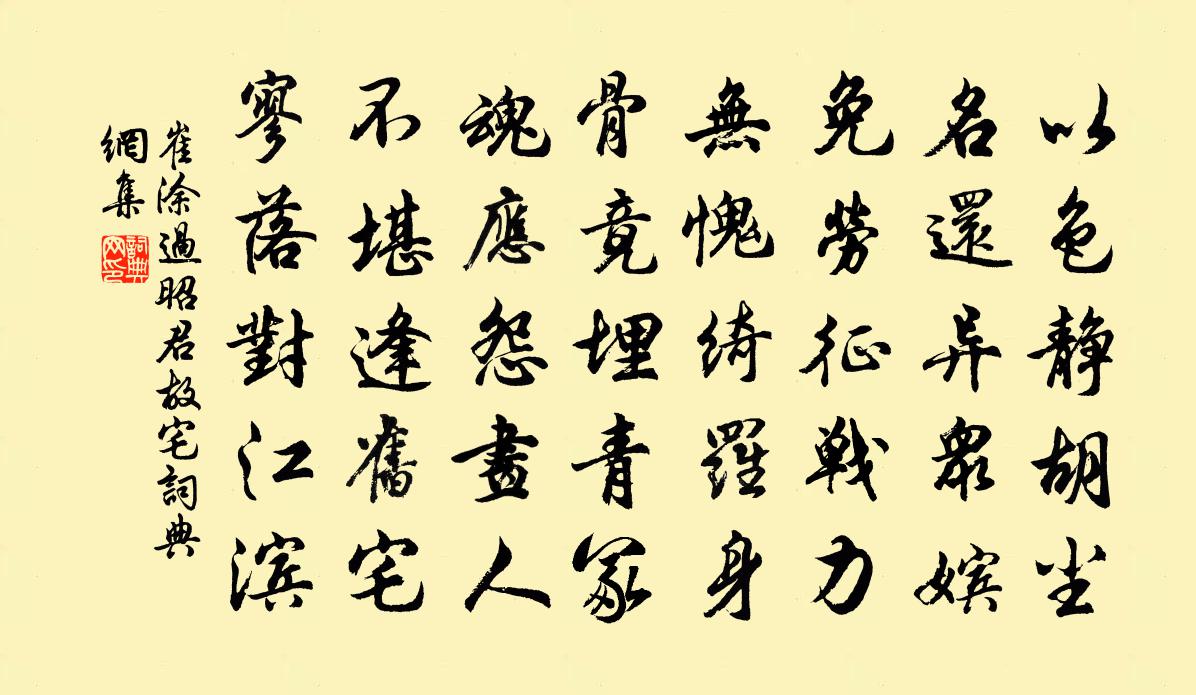 以色静胡尘
名還异眾嬪
免勞征戰力
無愧綺羅身
骨竟埋青冢
魂應怨畫人
不堪逢舊宅
寥落對江滨
崔涂過昭君故宅詞典
網集
詞典网印